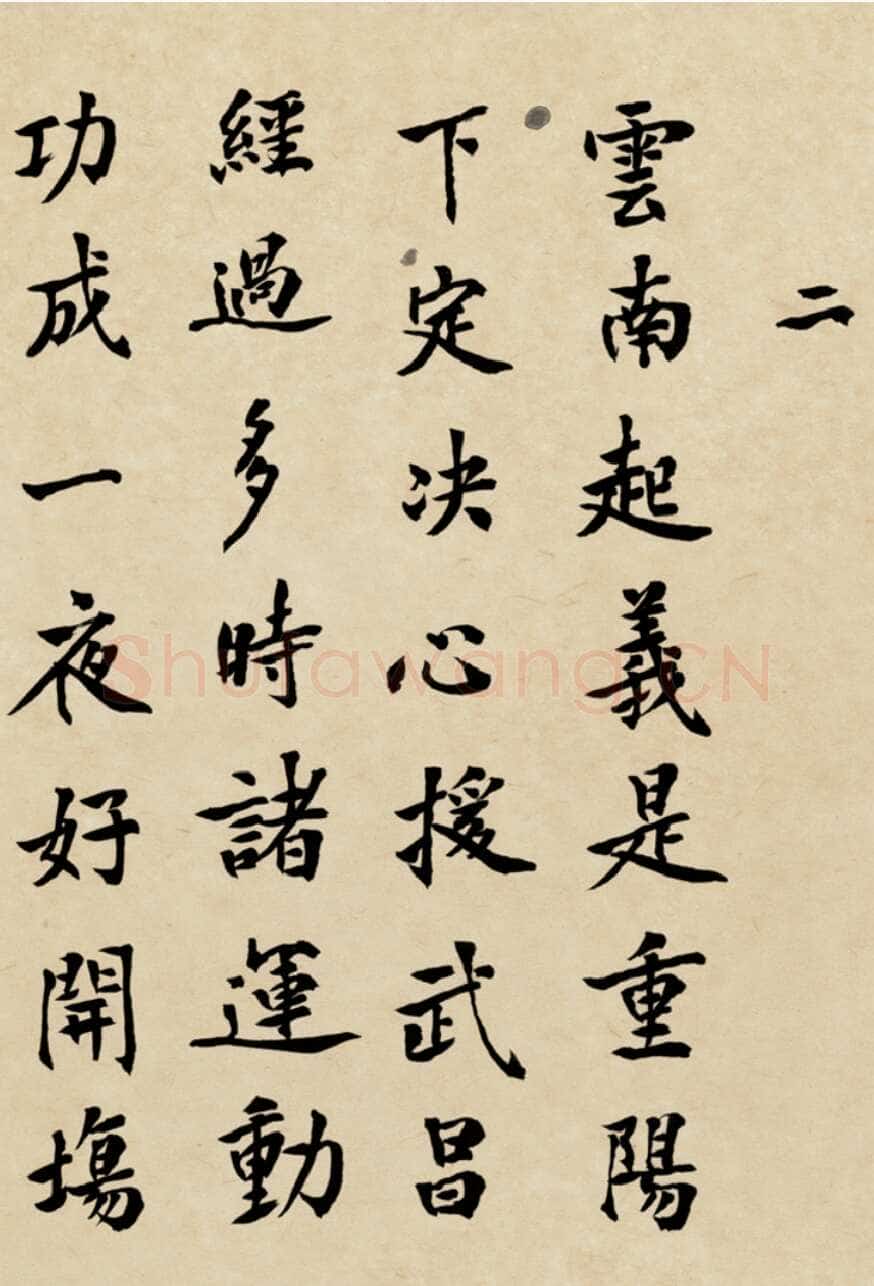 二
雲南起義是重陽
下定决心援武昌
經過多時諸運動
功成一夜好開塲
Shufawang.CN